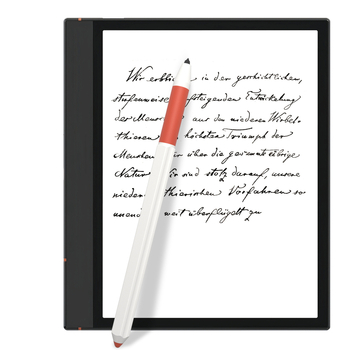 Wir erblicken in der geschichtlichen,
stufenweise aufsteigenden Entwickelung
der Menschen aus den niederen Wirbel-
thieren höchsten Triumph der
Menschen über die gesammte übrige
Natur. Wir sind stolz darauf, unsere
niederen thierischen Vorfahren so
unend weit überflügelt zu